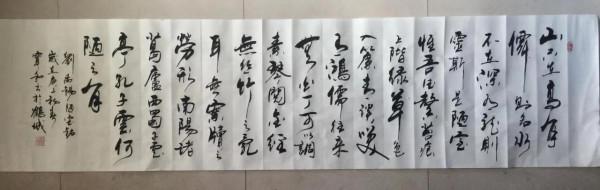 山不在高有
僊則名水
不在深有龍則
靈斯是陋室
惟吾德馨苔痕
上階綠草色
入簾青談笑
有鴻儒往來
無白丁可以調
素琴閱金經
無絲竹之亂
耳無案牘之
勞形南陽諸
葛廬西蜀子雲
亭孔子雲何
陋之有
劉禹錫陋室銘